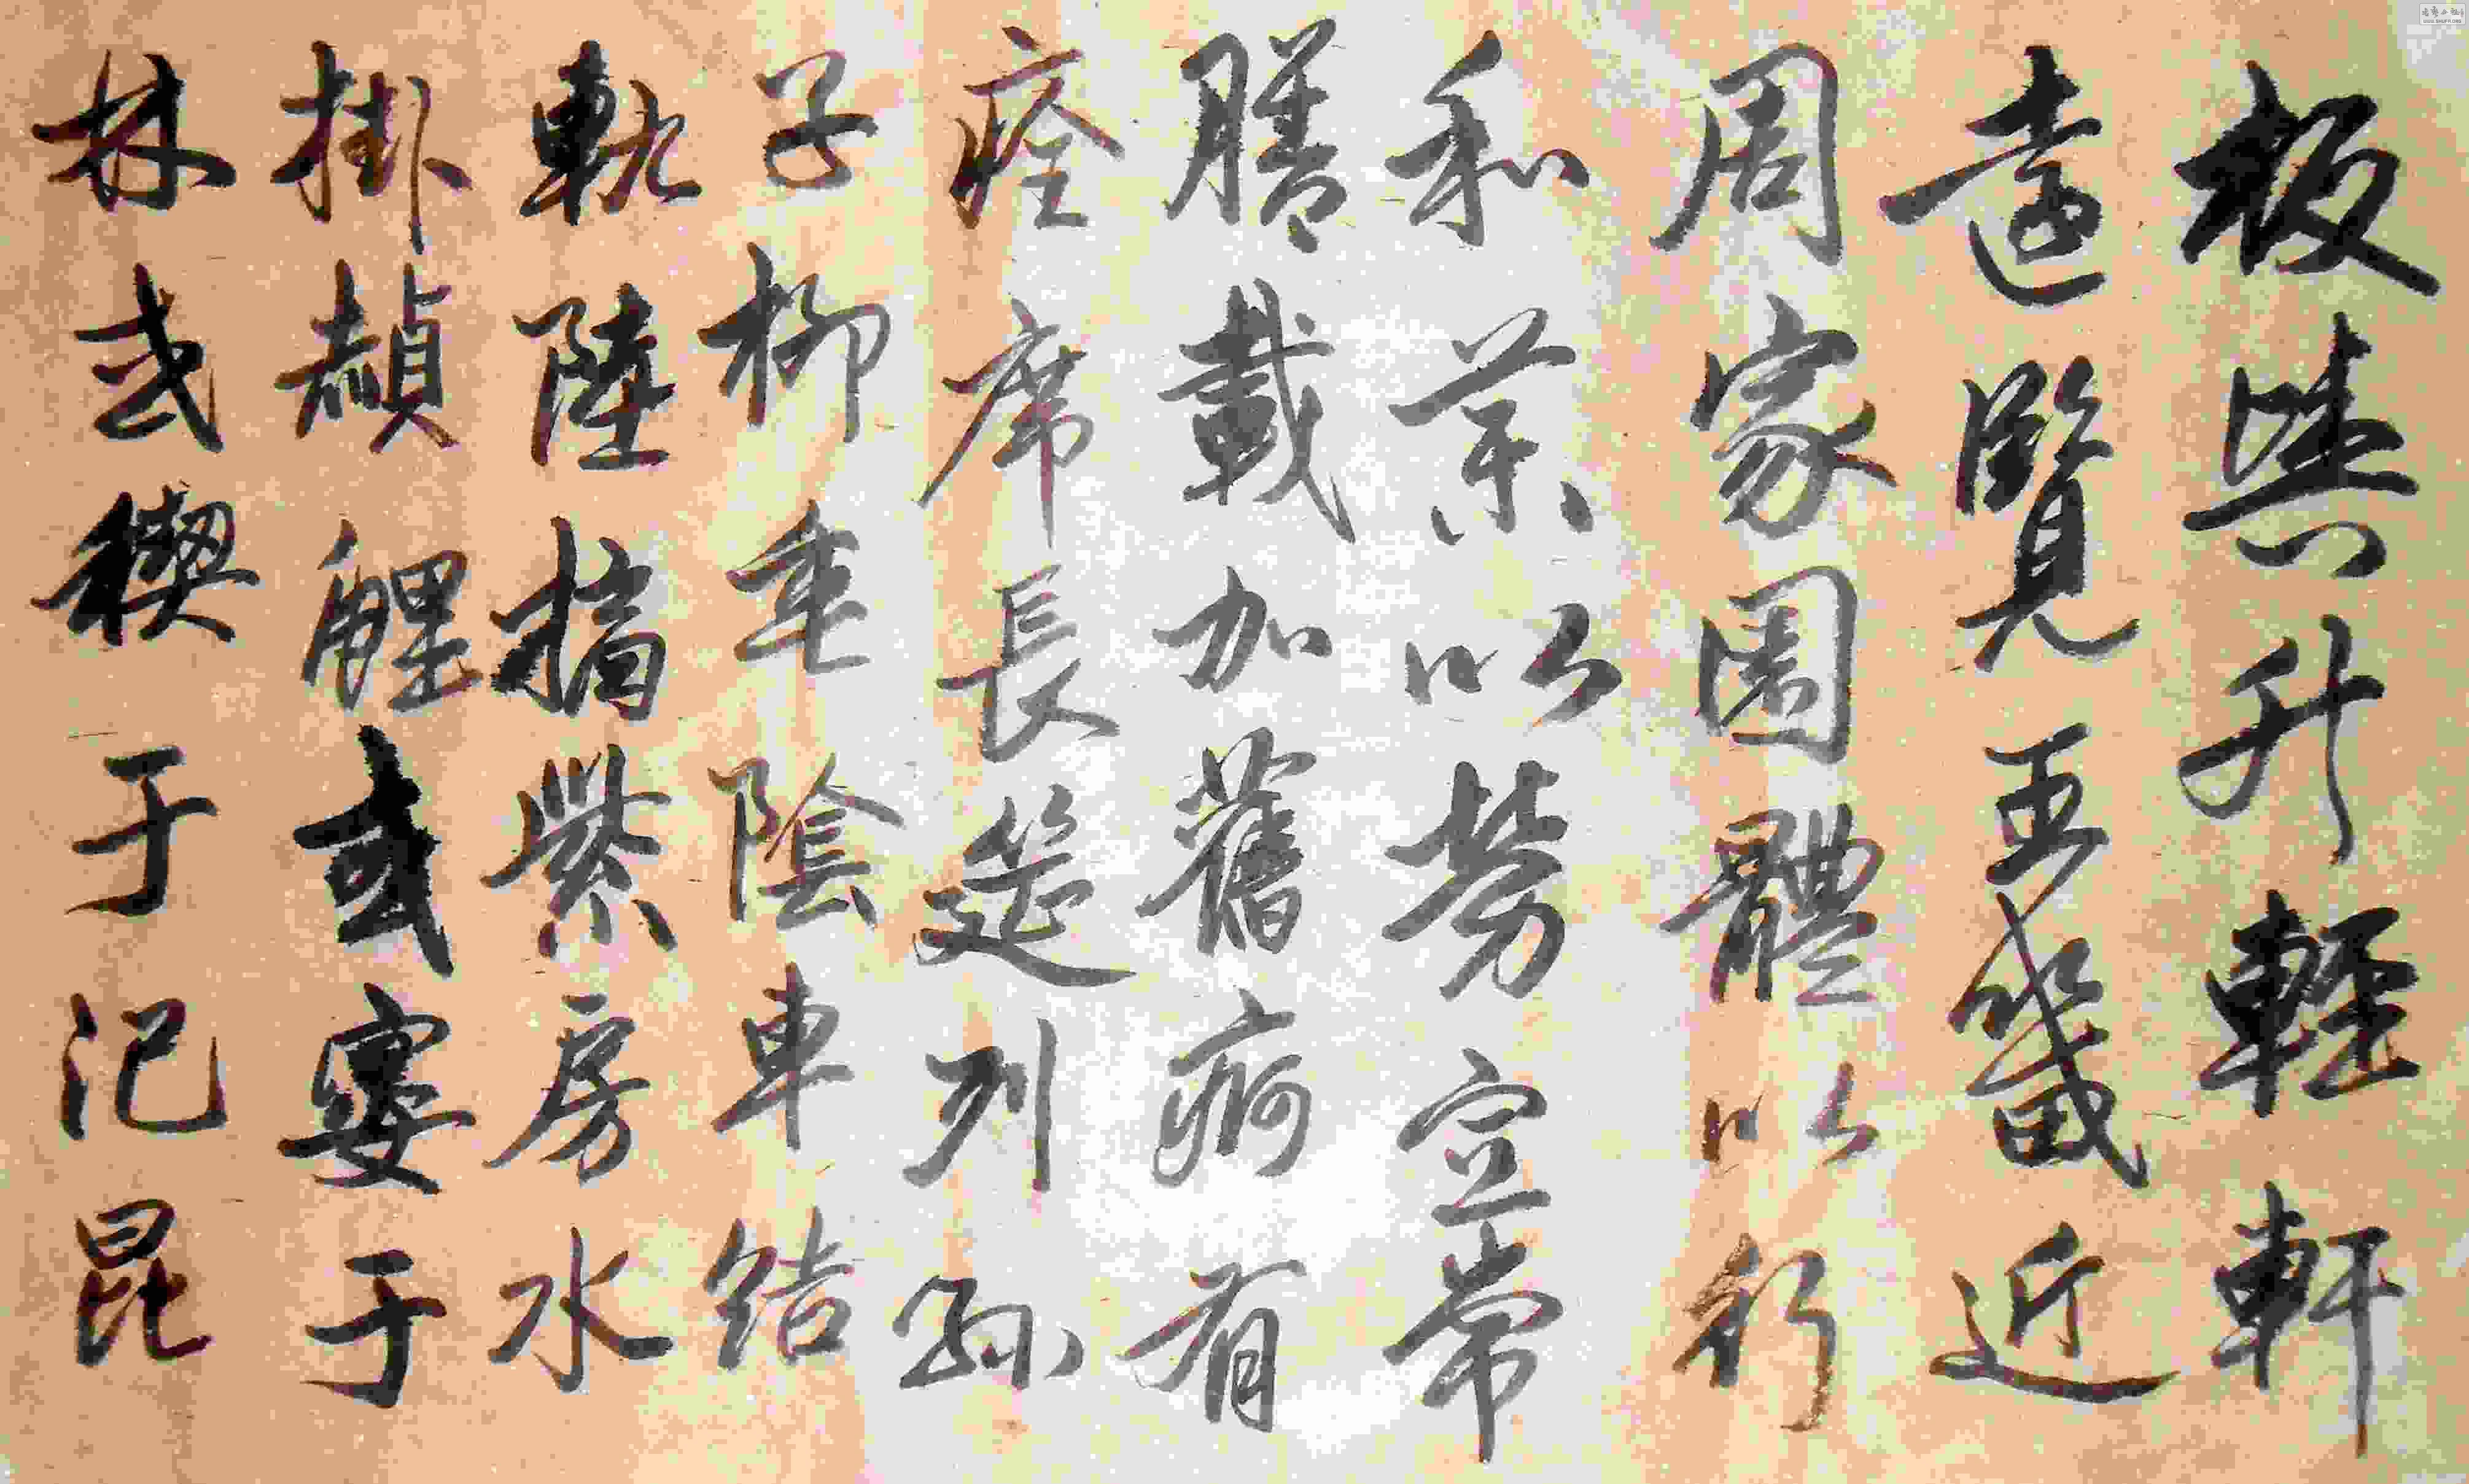 板輿升輕軒
遠覽王畿近
周家園體以行
和藥以勞宣常
膳載加舊痾有
痊席長筵列孫
子柳垂陰車結
軌陸摘紫房水
掛赬鯉或宴于
林或禊于汜昆